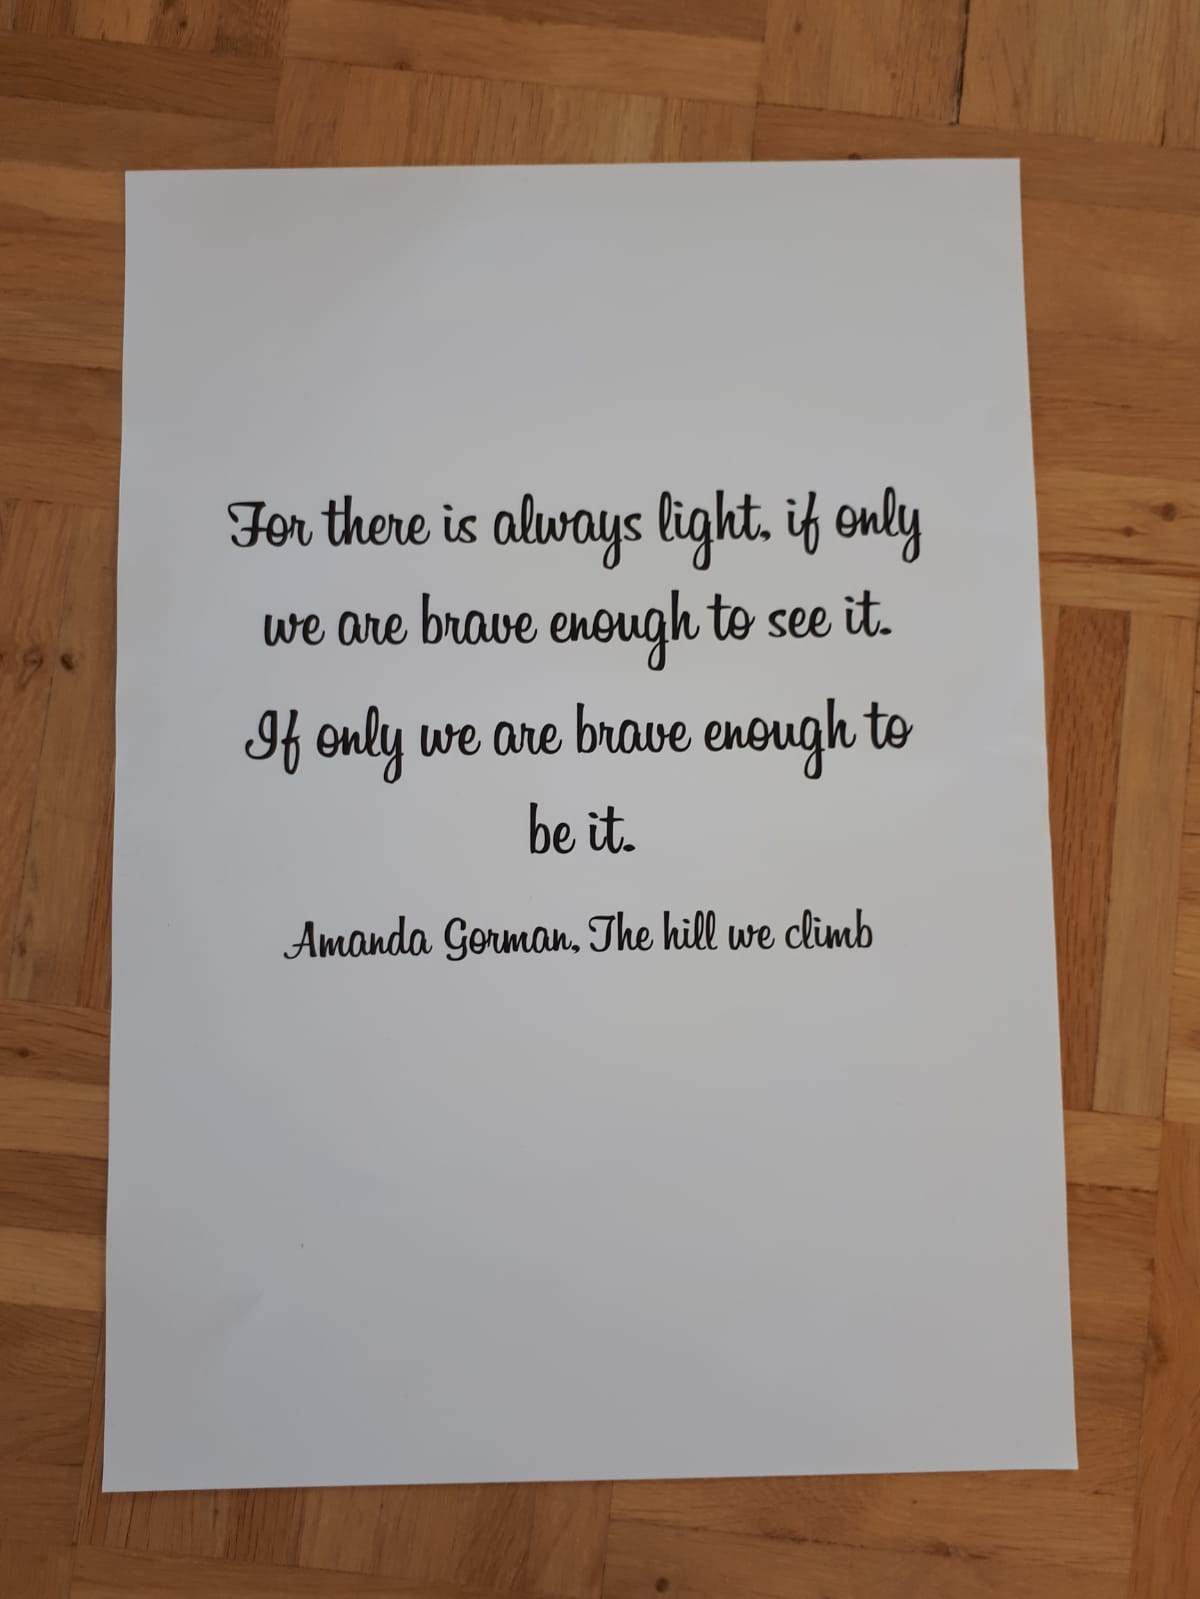 For there is always light, if only
we are brave enough to see it.
If only we are brave enough to
be it.
Amanda Gorman, The hill we climb